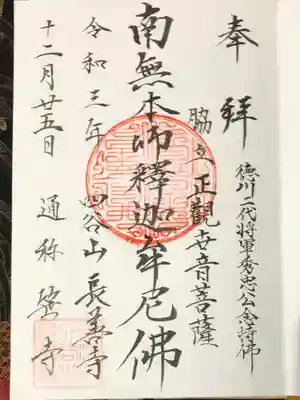 奉拝
徳川二代将軍秀忠公念持佛
脇立正觀世音菩薩
南無本师釋迦牟尼佛
四谷山長善寺
通称笹寺
令和三年
十二月廿五日